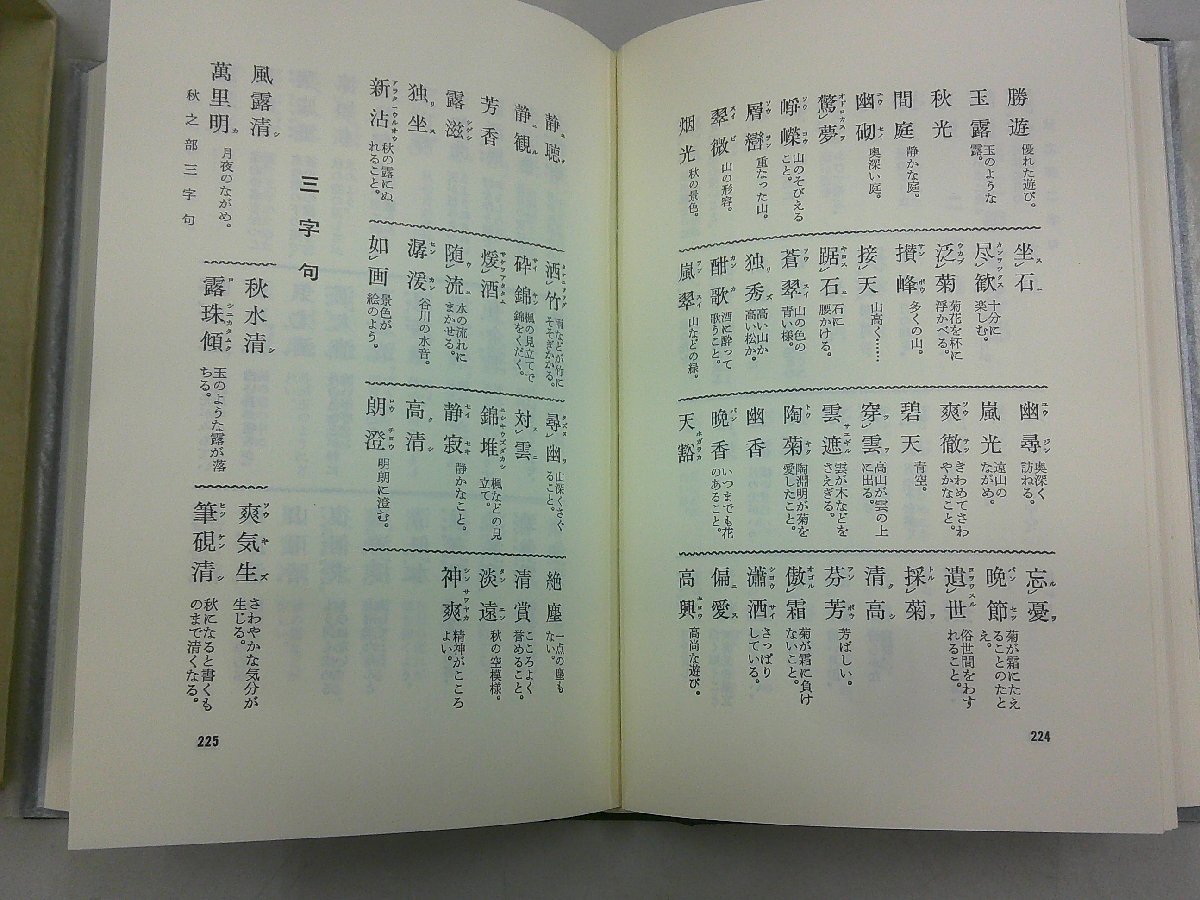 勝遊 優れた遊び。
玉露 玉のような露。
秋光
間庭 静かな庭。
幽砌 奥深い庭。
驚夢
崢嶸 山のそびえること。
層巒 重なった山。
翠微 山の形容。
烟光 秋の景色。
坐石
尽歓 十分に楽しむ。
泛菊 菊花を杯に浮かべる。
攅峰 多くの山。
接天 山高く……
踞石 石に腰かける。
蒼翠 山の色の青い様。
独秀 高い山か高い松か。
酣歌 酒に酔って歌うこと。
嵐翠 山などの緑。
幽尋 奥深く訪ねる。
嵐光 遠山のながめ。
爽徹 きわめてさわやかなこと。
碧天 青空。
穿雲 高山が雲の上に出る。
雲遮 雲が木などをさえぎる。
陶菊 陶淵明が菊を愛したこと。
幽香
晩香 いつまでも花のあること。
天豁
忘憂
晩節 菊が霜にたえることのたとえ。
遺世 俗世間をわすれること。
採菊
清高
芬芳 芳ばしい。
傲霜 菊が霜に負けないこと。
瀟洒 さっぱりしている。
偏愛
高興 高尚な遊び。
224
静聴
静観
芳香
露滋
独坐
新沾 秋の露にぬれること。
洒竹 雨などが竹にそそぎかかる。
砕錦 楓の見立てで錦をくだく。
煖酒
随流 水の流れにまかせる。
潺湲 谷川の水音。
如画 景色が絵のよう。
尋幽 山深くさぐること。
対雲
錦堆 楓などの見立て。
静寂 静かなこと。
高清
朗澄 明朗に澄む。
絶塵 一点の塵もない。
清賞 こころよく誉めること。
淡遠 秋の空模様。
神爽 精神がこころよい。
三字句
風露清
秋水清
爽気生 さわやかな気分が生じる。
萬里明 月夜のながめ。
露珠傾 玉のような露が落ちる。
筆硯清 秋になると書くものまで清くなる。
秋之部 三字句
225